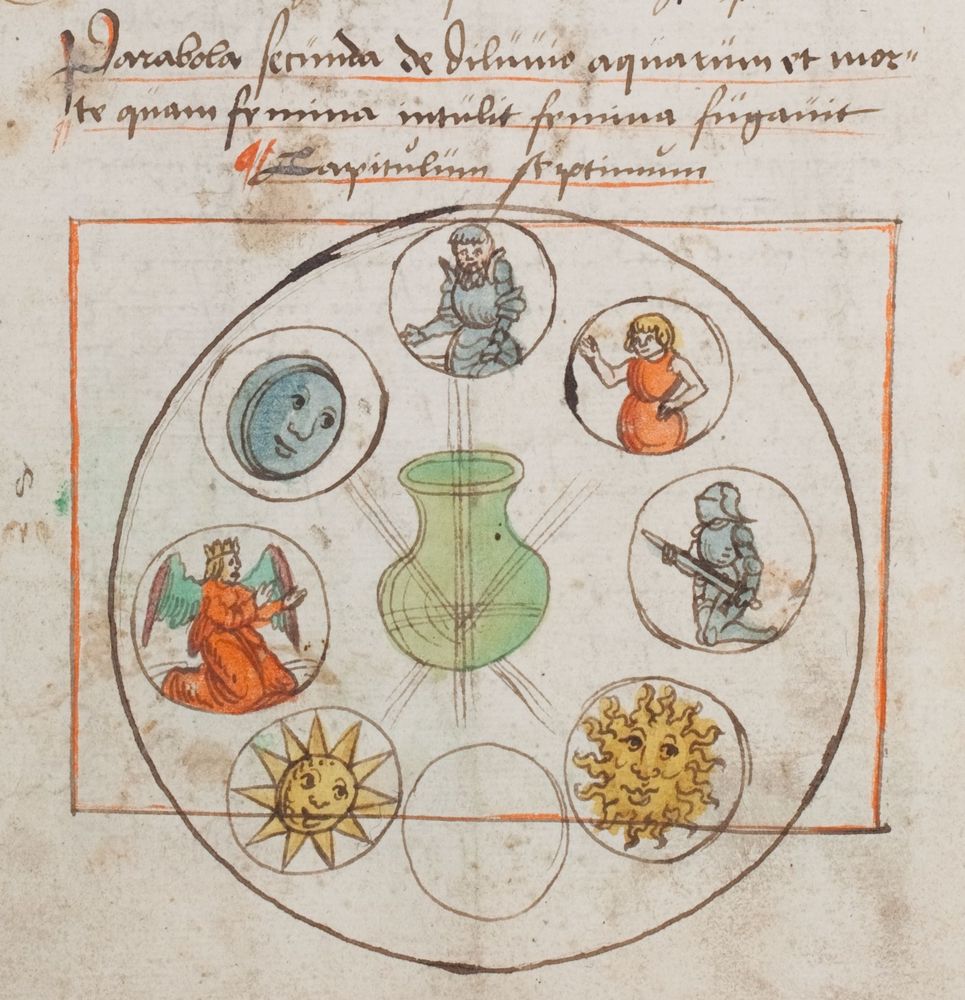 Parabola secunda de diluuio aquarum et mor-
te quam femina intulit femina fugauit
Capitulum septimum